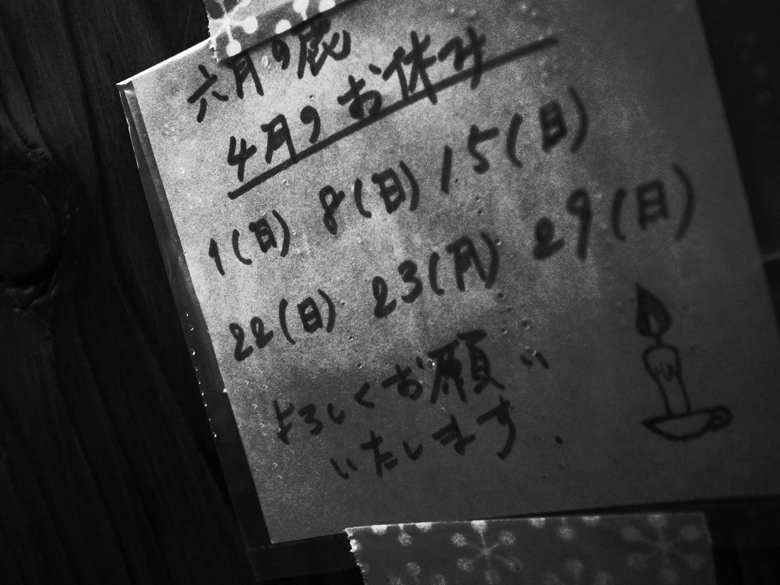 六月の鹿
4月のお休み
1(日) 8(日) 15(日)
22(日) 23(月) 29(日)
よろしくお願い
いたします.